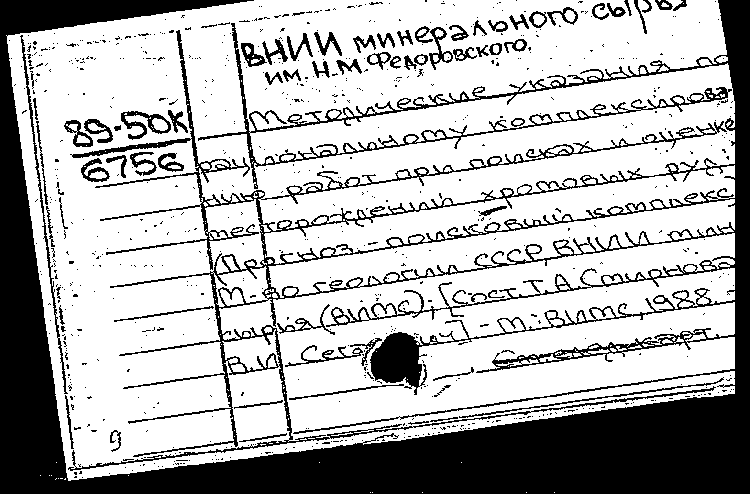 ВНИИ минерального сырья
им. Н.М. Федоровского.
89-50К
6756
Методические указания по
рациональному комплексирова-
нию работ при поисках и оценке
месторождений хромовых руд.
(Прогноз.-поисковый комплекс)
М-во геологии СССР, ВНИИ мин.
сырья (ВИМС); [Сост. Т.А. Смирнова
В.И. ] - М.: ВИМС, 1988. -
9